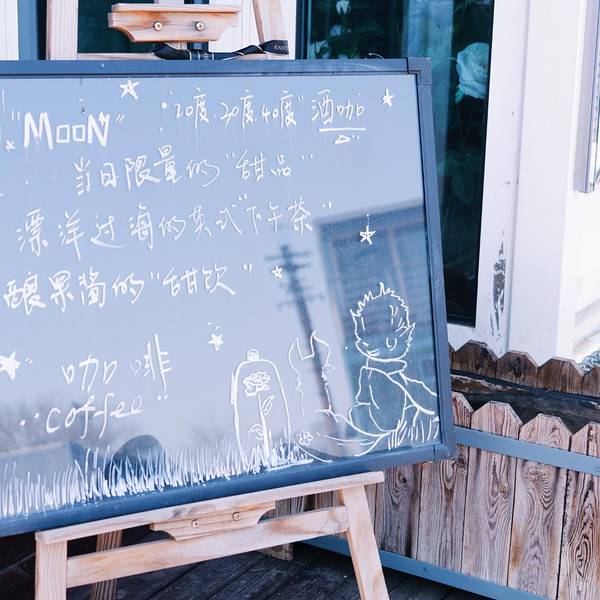 "MOON"
"20度.30度.40度" 酒咖
当日限量的"甜品"
漂洋过海的英式"下午茶"
酿果酱的"甜饮"
咖啡
"coffee"